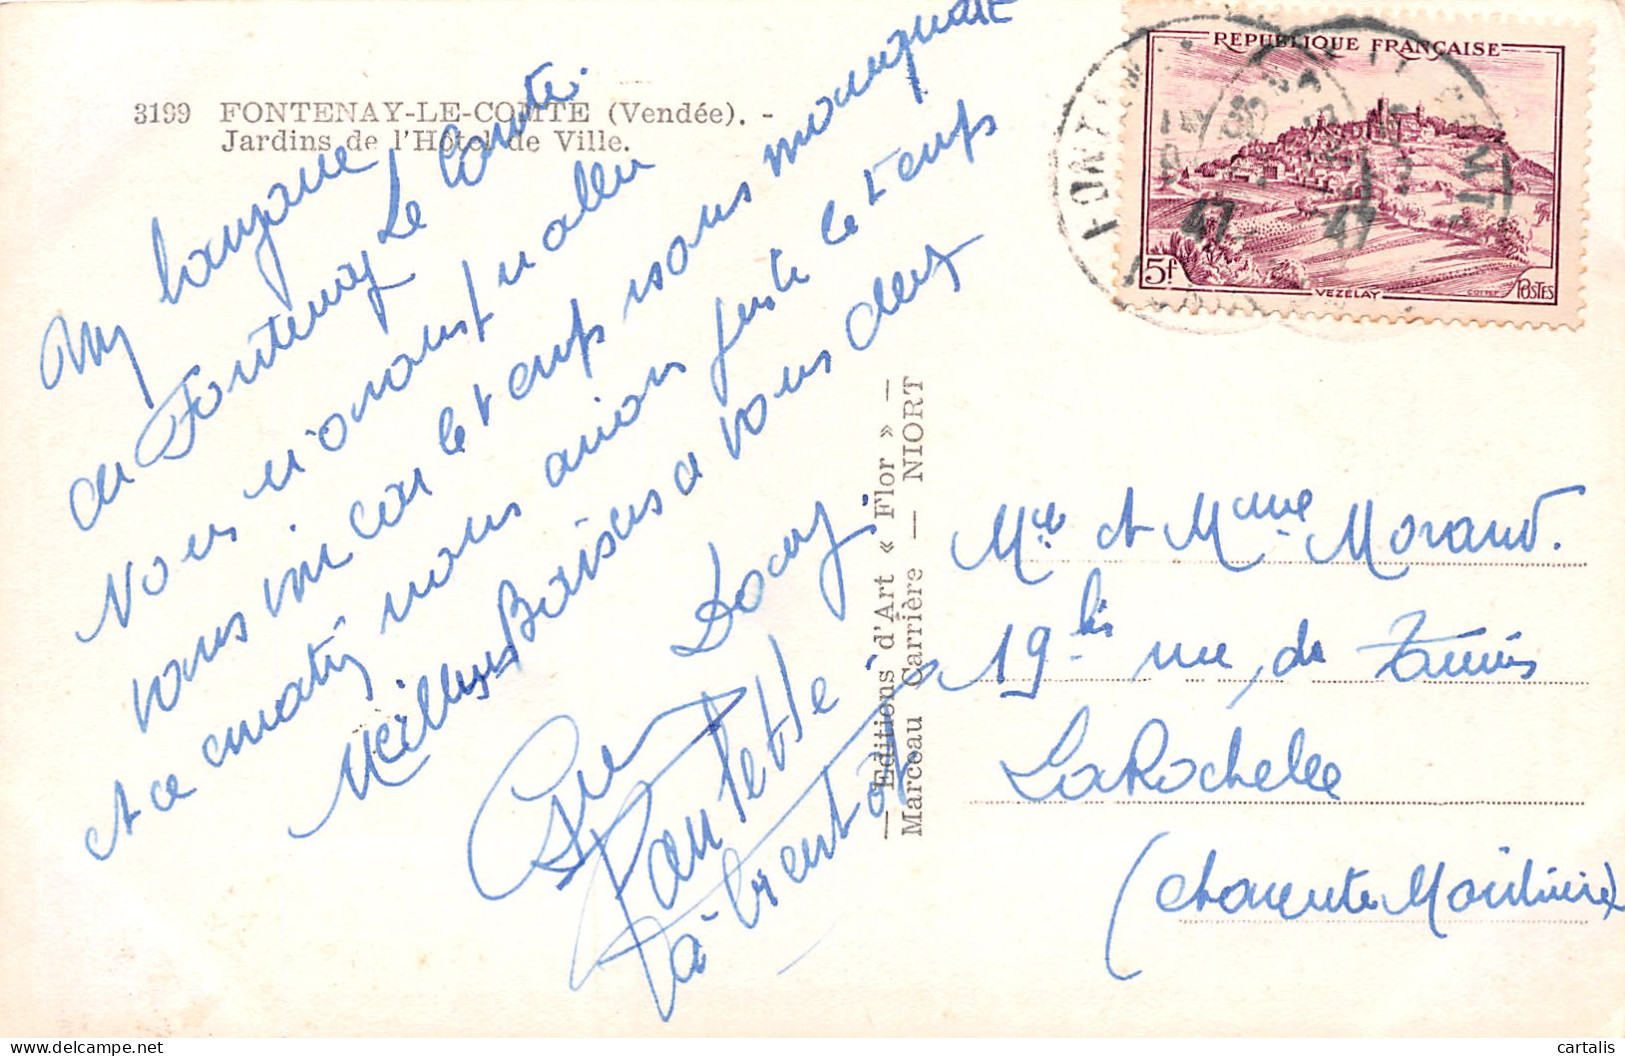 3199 FONTENAY-LE-COMTE (Vendée). -
Jardins de l'Hôtel de Ville.
de Fontenay Le Comte.
Nous n'avons
vous voir car le temps nous manquait
et ce matin nous avions juste le temps
Meilleurs Baisers a vous deux
Paulette
à bientôt
— Editions d'Art « Flor » —
Marceau Carrière — NIORT
REPUBLIQUE FRANÇAISE
5f
VEZELAY
POSTES
47
47
Mr et Mme Morand.
19 bis rue de
La Rochelle
(Charente Maritime)
cartalis